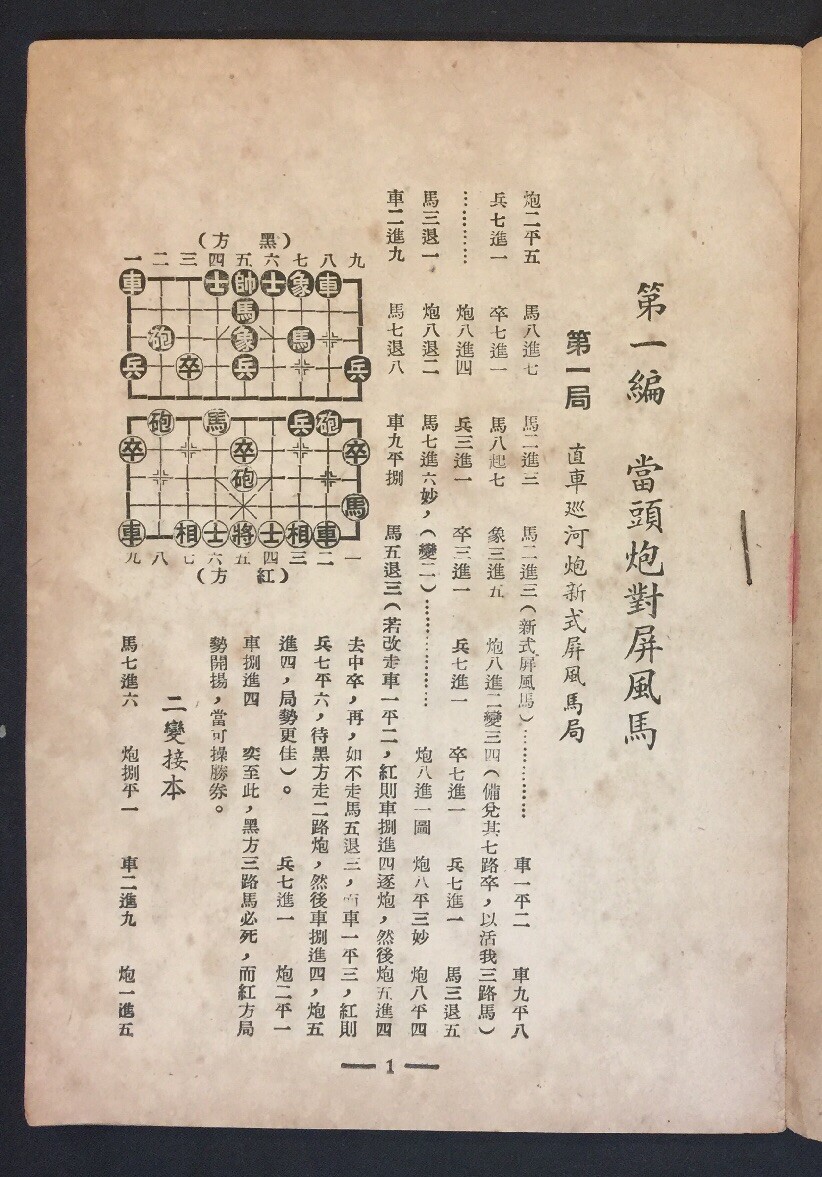 第一編　當頭炮對屏風馬
第一局　直車巡河炮新式屏風馬局
炮二平五　馬八進七　馬二進三　馬二進三（新式屏風馬）……………　車一平二　車九平八
兵七進一　卒七進一　馬八起七　象三進五　炮八進二變三四（備兌其七路卒，以活我三路馬）
…………　炮八進四　兵三進一　卒三進一　兵七進一　卒七進一　兵七進一　馬三退五
馬三退一　炮八退二　馬七進六妙，（變二）………………　炮八進一圖　炮八平三妙　炮八平四
車二進九　馬七退八　車九平捌　馬五退三（若改走車一平二，紅則車捌進四逐炮，然後炮五進四
去中卒，再，如不走馬五退三，車一平三，紅則
兵七平六，待黑方走二路炮，然後車捌進四，炮五
進四，局勢更佳）。　兵七進一　炮二平一
車捌進四　奕至此，黑方三路馬必死，而紅方局
勢開揚，當可操勝券。
二變接本
馬七進六　炮捌平一　車二進九　炮一進五
（黑方）
一二三四五六七八九
車士帥士象車
馬
砲象馬
兵卒兵兵
砲馬兵砲
卒卒卒
砲
馬
車相士將士相車
九八七六五四三二一
（紅方）
1